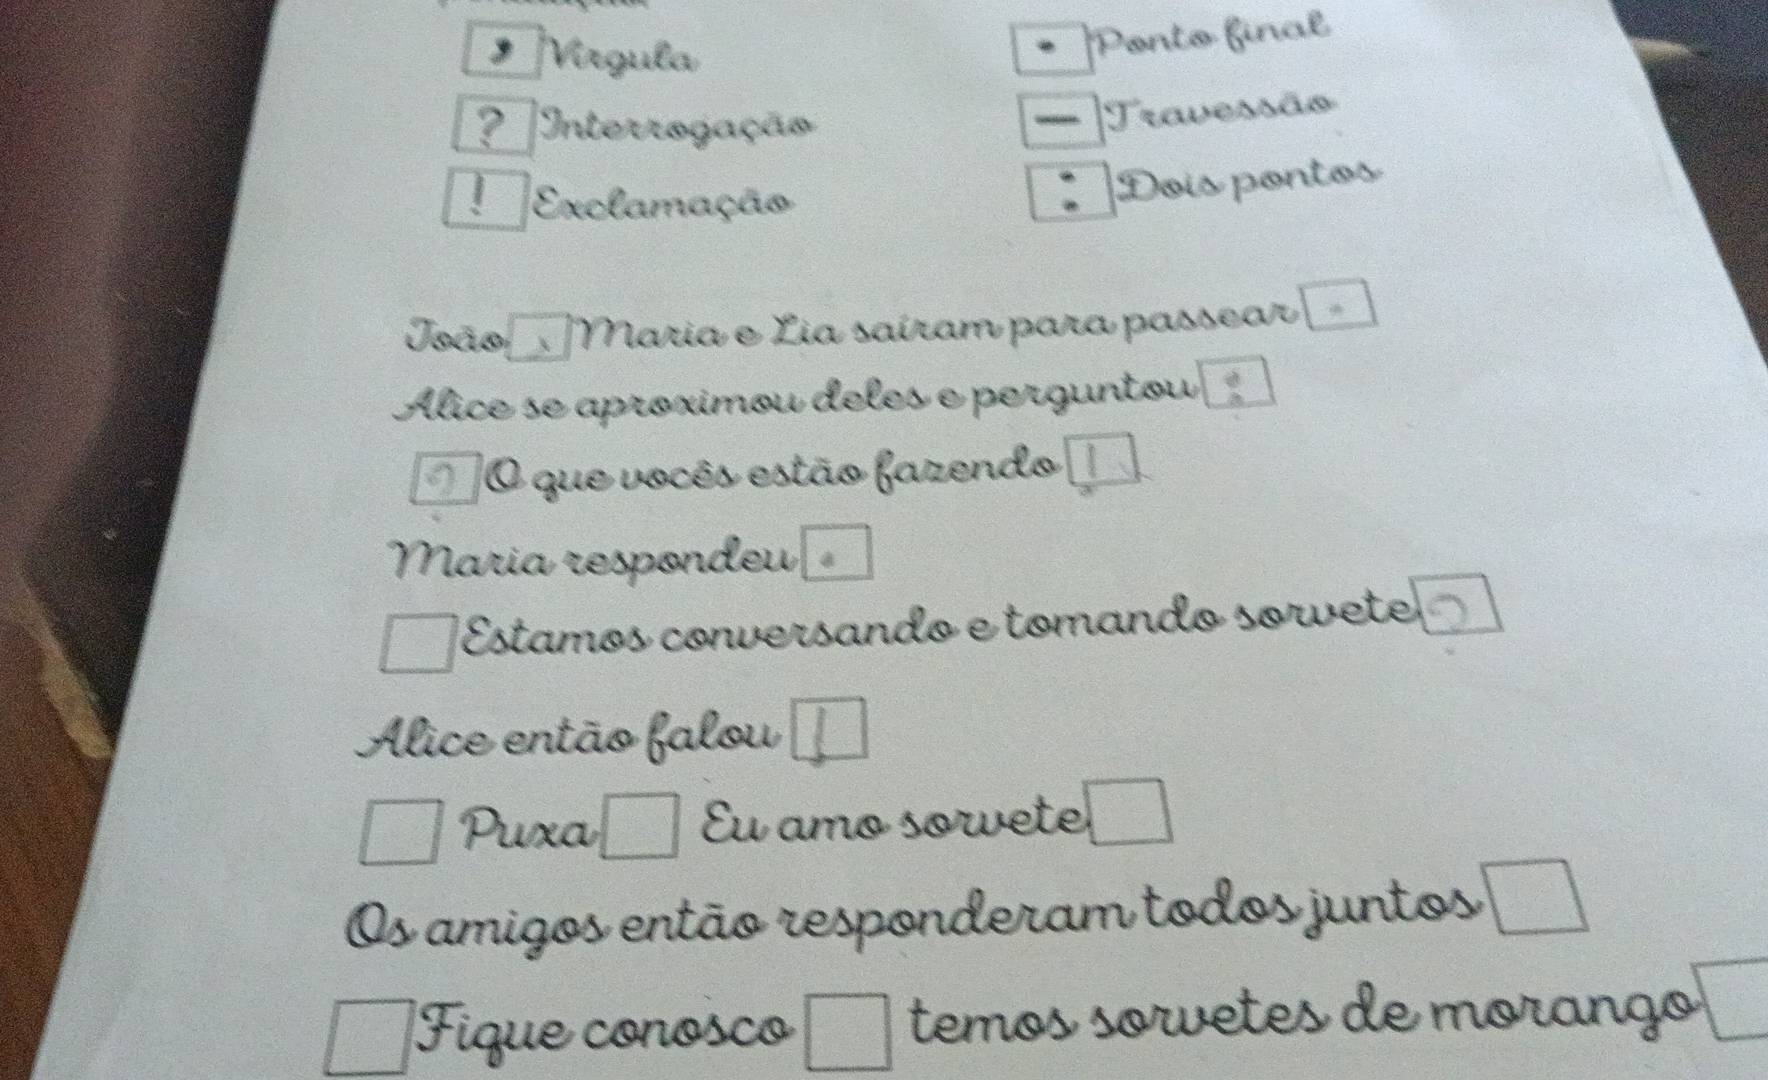 , Vírgula
. Ponto final
? Interrogação
— Travessão
! Exclamação
: Dois pontos
João , Maria e Lia saíram para passear .
Alice se aproximou deles e perguntou :
? O que vocês estão fazendo !
Maria respondeu .
Estamos conversando e tomando sorvete ?
Alice então falou !
Puxa Eu amo sorvete
Os amigos então responderam todos juntos
Fique conosco temos sorvetes de morango